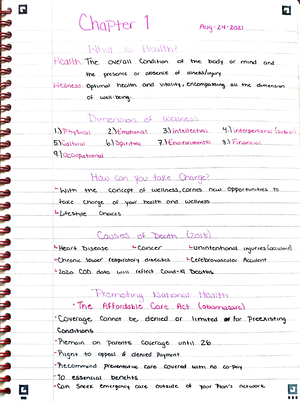 Chapter 1
Aug-24-2021
What is Health?
Health: The overall condition of the body or mind and
the presence or absence of illness/injury
Wellness: Optimal health and vitality, encompassing all the dimension
of well-being.
Dimensions of Wellness
1.) Physical 2.) Emotional 3.) Intellectual 4.) interpersonal (social)
5.) Cultural 6.) Spiritual 7.) Environmental 8.) Financial
9.) Occupational
How can you take Charge?
With the concept of wellness, comes new opportunities to
take charge of your health and wellness
Lifestyle choices
Causes of Death (2018)
Heart Disease Cancer Unintentional injuries (accidents)
Chronic lower respiratory diseases Cerebrovascular Accident
2020 COD data will reflect Covid-19 Deaths
Promoting National Health
• The Affordable Care Act (obamacare)
• Coverage cannot be denied or limited for preexisting
Conditions
• Remain on parents coverage until 26
• Right to appeal denied Payment
• Recommend preventative care covered with no co-pay
• 10 essential benefits
• Can seek emergency care outside of your Plan's network